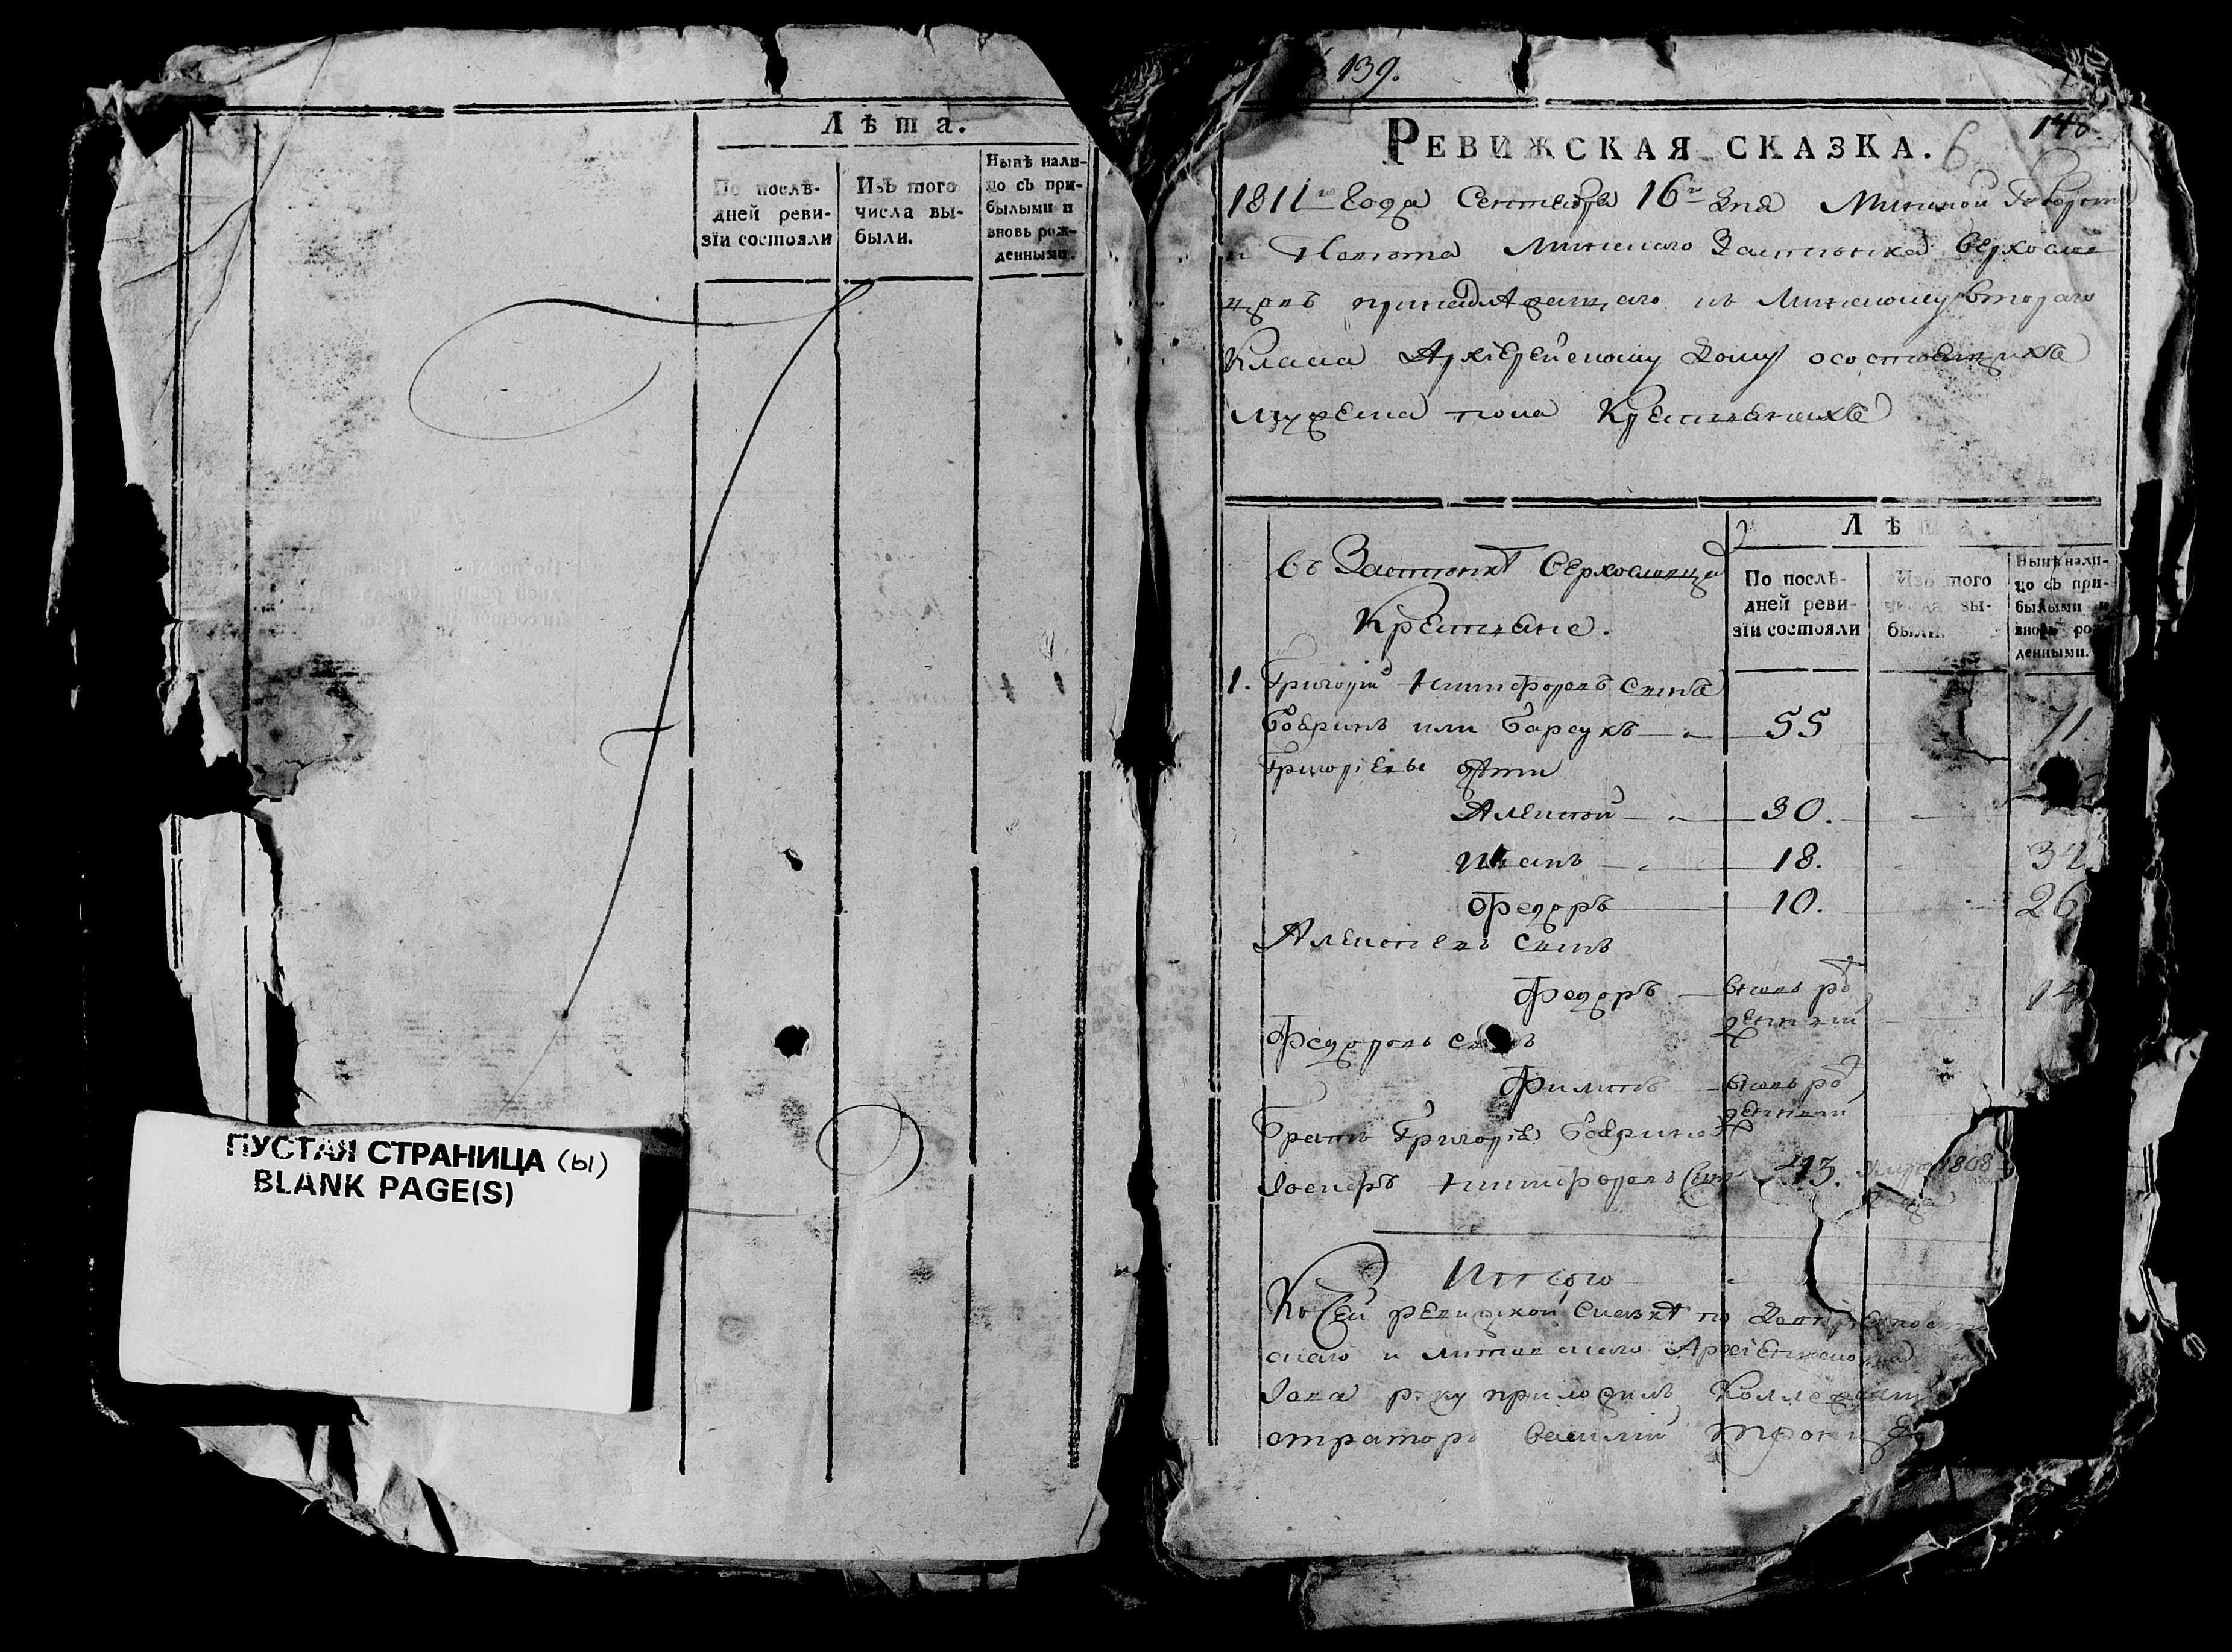 Лѣта.
По послѣ-
дней реви-
зїи состояли
Изъ того
числа вы-
были.
Нынѣ нали-
цо съ при-
былыми и
вновь рож-
денными.
ПУСТАЯ СТРАНИЦА (ы)
BLANK PAGE(S)
139.
148.
РЕВИЖСКАЯ СКАЗКА. 6
1811го Года Сентября 16го дня Минской Губерн
и Повѣта Минскаго Застѣнка
принадлежащаго къ Минскому второго
Класса Архіерейскому Дому о состоящихъ
мужеска пола Крестьянахъ
Лѣ
въ Застѣнкѣ
Крестьяне.
По послѣ-
дней реви-
зїи состояли
Изъ того
числа вы-
были.
Нынѣ нали-
цо съ при-
былыми и
вновь ро
денными.
1. Григорій Никифоровъ Сынъ
Бобринъ или Барсукъ 55 71.
Григоріевы дѣти
Алексѣй 30.
Иванъ 18. 32
Федоръ 10. 26
Алексѣевъ сынъ
Федоръ вновь рож
денный
Федоровъ сынъ
Филипъ вновь рож
денный
Братъ Григорія
Никифоровъ Сынъ 43. 1808
Года
Итого
Къ сей ревижской сказкѣ по
скаго и Литовскаго Архіепископа
Іова руку приложилъ Коллежск
страторъ Василій